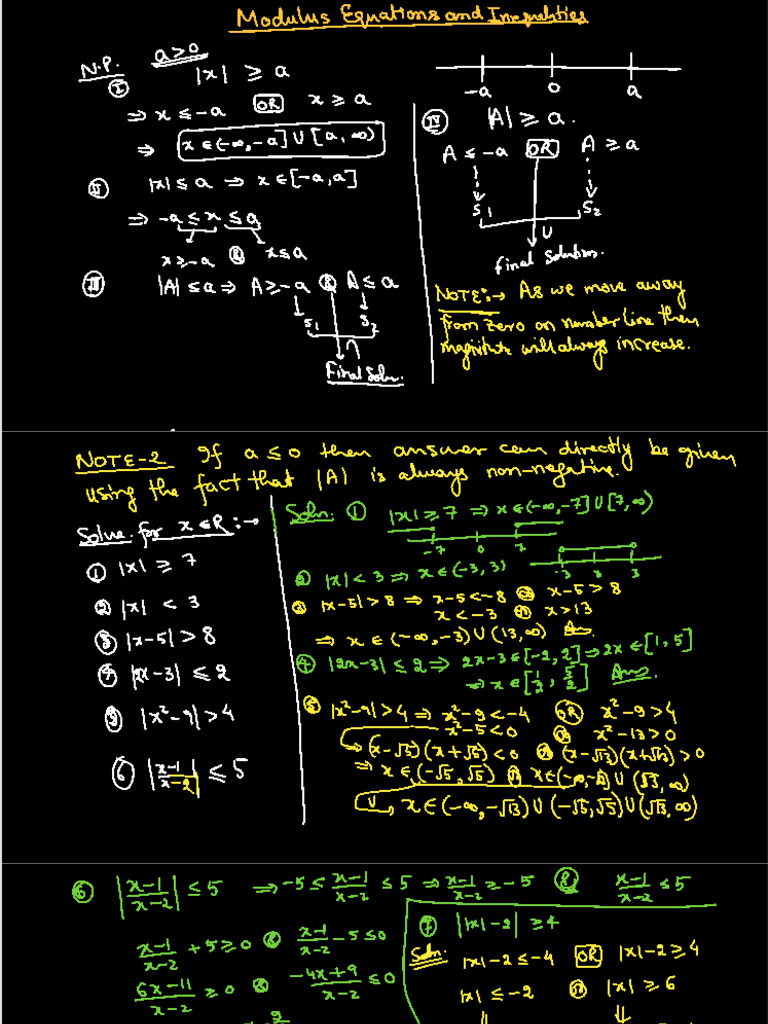 Modulus Equations and Inequalities
N.P. a>0
I |x| ≥ a
⇒ x ≤ -a OR x ≥ a
⇒ x ∈ (-∞, -a] ∪ [a, ∞)
II |x| ≤ a ⇒ x ∈ [-a, a]
⇒ -a ≤ x ≤ a
x ≥ -a & x ≤ a
III |A| ≤ a ⇒ A ≥ -a & A ≤ a
S1 S2
∩
Final Soln.
-a 0 a
IV |A| ≥ a.
A ≤ -a OR A ≥ a
S1 S2
∪
Final Solution.
NOTE:→ As we move away
from zero on number line then
magnitude will always increase.
NOTE-2 If a ≤ 0 then answer can directly be given
using the fact that |A| is always non-negative.
Solve for x ∈ R:→
① |x| ≥ 7
② |x| < 3
③ |x-5| > 8
④ |2x-3| ≤ 2
⑤ |x²-9| > 4
⑥ |x-1/x-2| ≤ 5
Soln. ① |x| ≥ 7 ⇒ x ∈ (-∞, -7] ∪ [7, ∞)
-7 0 7
② |x| < 3 ⇒ x ∈ (-3, 3)
-3 3
③ |x-5| > 8 ⇒ x-5 < -8 OR x-5 > 8
x < -3 OR x > 13
⇒ x ∈ (-∞, -3) ∪ (13, ∞) Ans.
④ |2x-3| ≤ 2 ⇒ 2x-3 ∈ [-2, 2] ⇒ 2x ∈ [1, 5]
⇒ x ∈ [1/2, 5/2] Ans.
⑤ |x²-9| > 4 ⇒ x²-9 < -4 OR x²-9 > 4
x²-5 < 0 OR x²-13 > 0
(x-√5)(x+√5) < 0 OR (x-√13)(x+√13) > 0
⇒ x ∈ (-√5, √5) OR x ∈ (-∞, -√13) ∪ (√13, ∞)
∪ x ∈ (-∞, -√13) ∪ (-√5, √5) ∪ (√13, ∞)
⑥ |x-1/x-2| ≤ 5 ⇒ -5 ≤ x-1/x-2 ≤ 5 ⇒ x-1/x-2 ≥ -5 & x-1/x-2 ≤ 5
x-1/x-2 + 5 ≥ 0 & x-1/x-2 - 5 ≤ 0
6x-11/x-2 ≥ 0 & -4x+9/x-2 ≤ 0
⑦ ||x|-2| ≥ 4
Soln: |x|-2 ≤ -4 OR |x|-2 ≥ 4
|x| ≤ -2 OR |x| ≥ 6